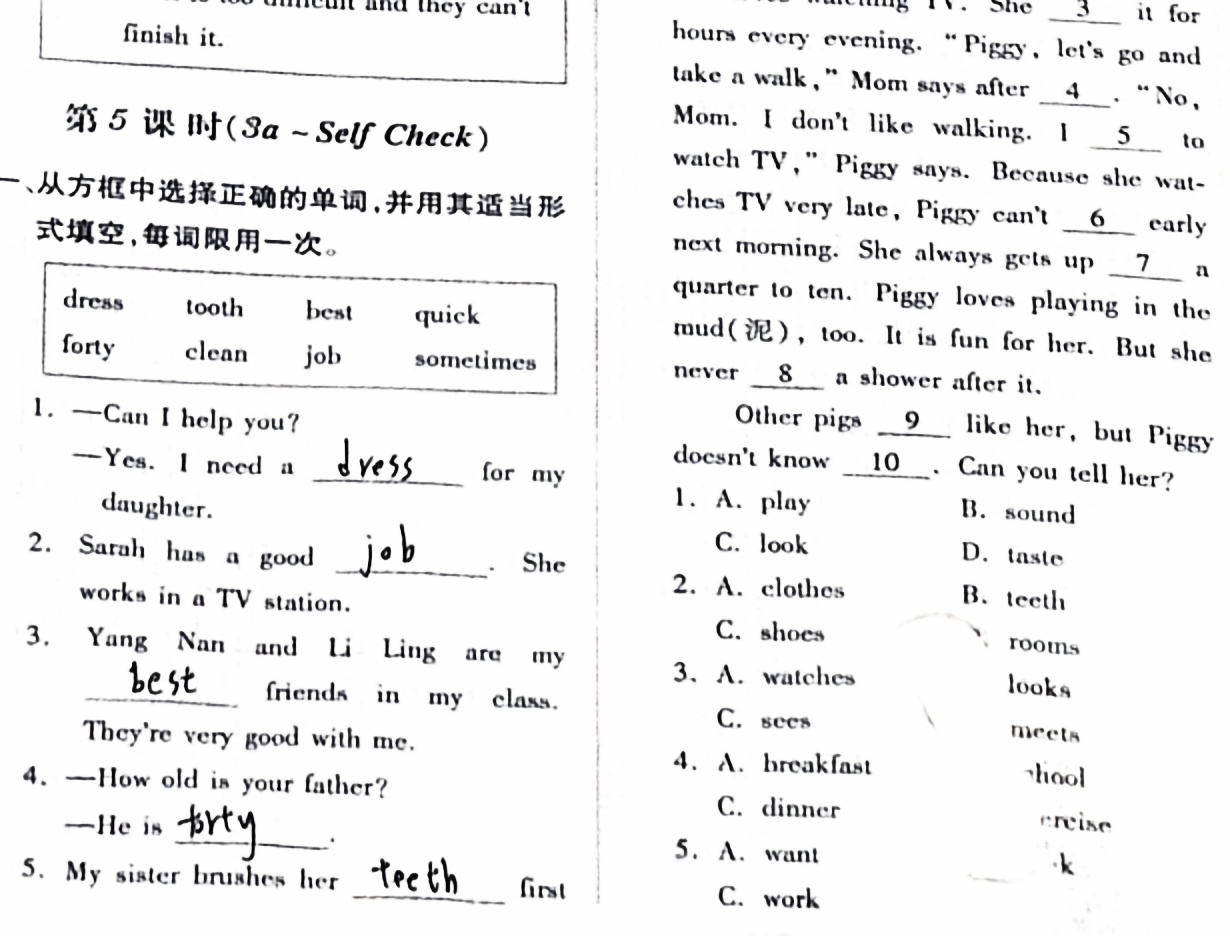 and they can't
finish it.
第 5 课 时(3a ~ Self Check)
一、从方框中选择正确的单词,并用其适当形
式填空,每词限用一次。
dress tooth best quick
forty clean job sometimes
1. —Can I help you?
—Yes. I need a dress for my
daughter.
2. Sarah has a good job. She
works in a TV station.
3. Yang Nan and Li Ling are my
best friends in my class.
They're very good with me.
4. —How old is your father?
—He is forty.
5. My sister brushes her teeth first
TV. She 3 it for
hours every evening. "Piggy, let's go and
take a walk," Mom says after 4. "No,
Mom. I don't like walking. I 5 to
watch TV," Piggy says. Because she wat-
ches TV very late, Piggy can't 6 early
next morning. She always gets up 7 a
quarter to ten. Piggy loves playing in the
mud(泥), too. It is fun for her. But she
never 8 a shower after it.
Other pigs 9 like her, but Piggy
doesn't know 10. Can you tell her?
1. A. play B. sound
C. look D. taste
2. A. clothes B. teeth
C. shoes rooms
3. A. watches looks
C. sees meets
4. A. breakfast
C. dinner
5. A. want
C. work